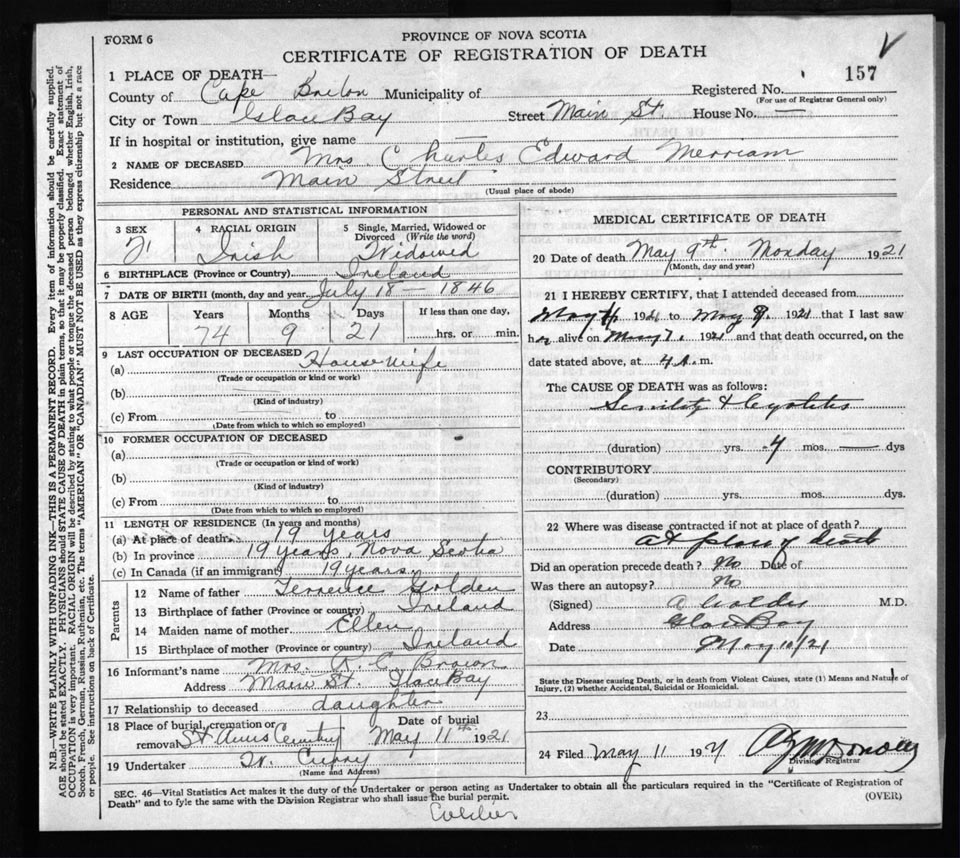 FORM 6
PROVINCE OF NOVA SCOTIA
CERTIFICATE OF REGISTRATION OF DEATH
157
1 PLACE OF DEATH—
County of Cape Breton Municipality of Registered No.
(For use of Registrar General only)
City or Town Glace Bay Street Main St. House No. —
If in hospital or institution, give name —
2 NAME OF DECEASED Mrs. Charles Edward Merriam
Residence Main Street
(Usual place of abode)
PERSONAL AND STATISTICAL INFORMATION
3 SEX 4 RACIAL ORIGIN 5 Single, Married, Widowed or Divorced (Write the word)
F. Irish Widowed
6 BIRTHPLACE (Province or Country) Ireland
7 DATE OF BIRTH (month, day and year July 18 — 1846
8 AGE Years Months Days If less than one day,
74 9 21 hrs. or min.
9 LAST OCCUPATION OF DECEASED
(a) Housewife
(Trade or occupation or kind or work)
(b)
(Kind of industry)
(c) From to
(Date from which to which so employed)
10 FORMER OCCUPATION OF DECEASED
(a)
(Trade or occupation or kind of work)
(b)
(Kind of industry)
(c) From to
(Date from which to which so employed)
11 LENGTH OF RESIDENCE (In years and months)
(a) At place of death 19 years
(b) In province 19 years, Nova Scotia
(c) In Canada (if an immigrant) 19 years
Parents
12 Name of father Terrence Golden
13 Birthplace of father (Province or country) Ireland
14 Maiden name of mother Ellen
15 Birthplace of mother (Province or country) Ireland
16 Informant's name Mrs. A. C. Brown
Address Main St. Glace Bay
17 Relationship to deceased daughter
18 Place of burial, cremation or removal St Anns Cemetery Date of burial May 11th 1921
19 Undertaker W. Curry
(Name and Address)
MEDICAL CERTIFICATE OF DEATH
20 Date of death May 9th Monday 1921
(Month, day and year)
21 I HEREBY CERTIFY, that I attended deceased from
May 4 1921 to May 9 1921 that I last saw
her alive on May 7 1921 and that death occurred, on the
date stated above, at 4 A.m.
The CAUSE OF DEATH was as follows:
Senility & Cystitis
(duration) yrs. 4 mos. — dys
CONTRIBUTORY
(Secondary)
(duration) yrs. mos. dys.
22 Where was disease contracted if not at place of death?
At place of death
Did an operation precede death? No Date of
Was there an autopsy? No
(Signed) M.D.
Address Glace Bay
Date May 10/21
State the Disease causing Death, or in death from Violent Causes, state (1) Means and Nature of
Injury, (2) whether Accidental, Suicidal or Homicidal.
23
24 Filed May 11 1921
Division Registrar
SEC. 46—Vital Statistics Act makes it the duty of the Undertaker or person acting as Undertaker to obtain all the particulars required in the "Certificate of Registration of
Death" and to fyle the same with the Division Registrar who shall issue the burial permit.
(OVER)
N.B.—WRITE PLAINLY WITH UNFADING INK—THIS IS A PERMANENT RECORD. Every item of information should be carefully supplied.
AGE should be stated EXACTLY. PHYSICIANS should STATE CAUSE OF DEATH in plain terms, so that it may be properly classified. Exact statement of
OCCUPATION is very important. RACIAL ORIGIN will be described by stating to what people or tongue the deceased person belonged whether English, Irish,
Scotch, French, German, Russian, Ruthenian, etc. The terms "AMERICAN" OR "CANADIAN" MUST NOT BE USED as they express citizenship but not a race
or people. See instructions on back of Certificate.